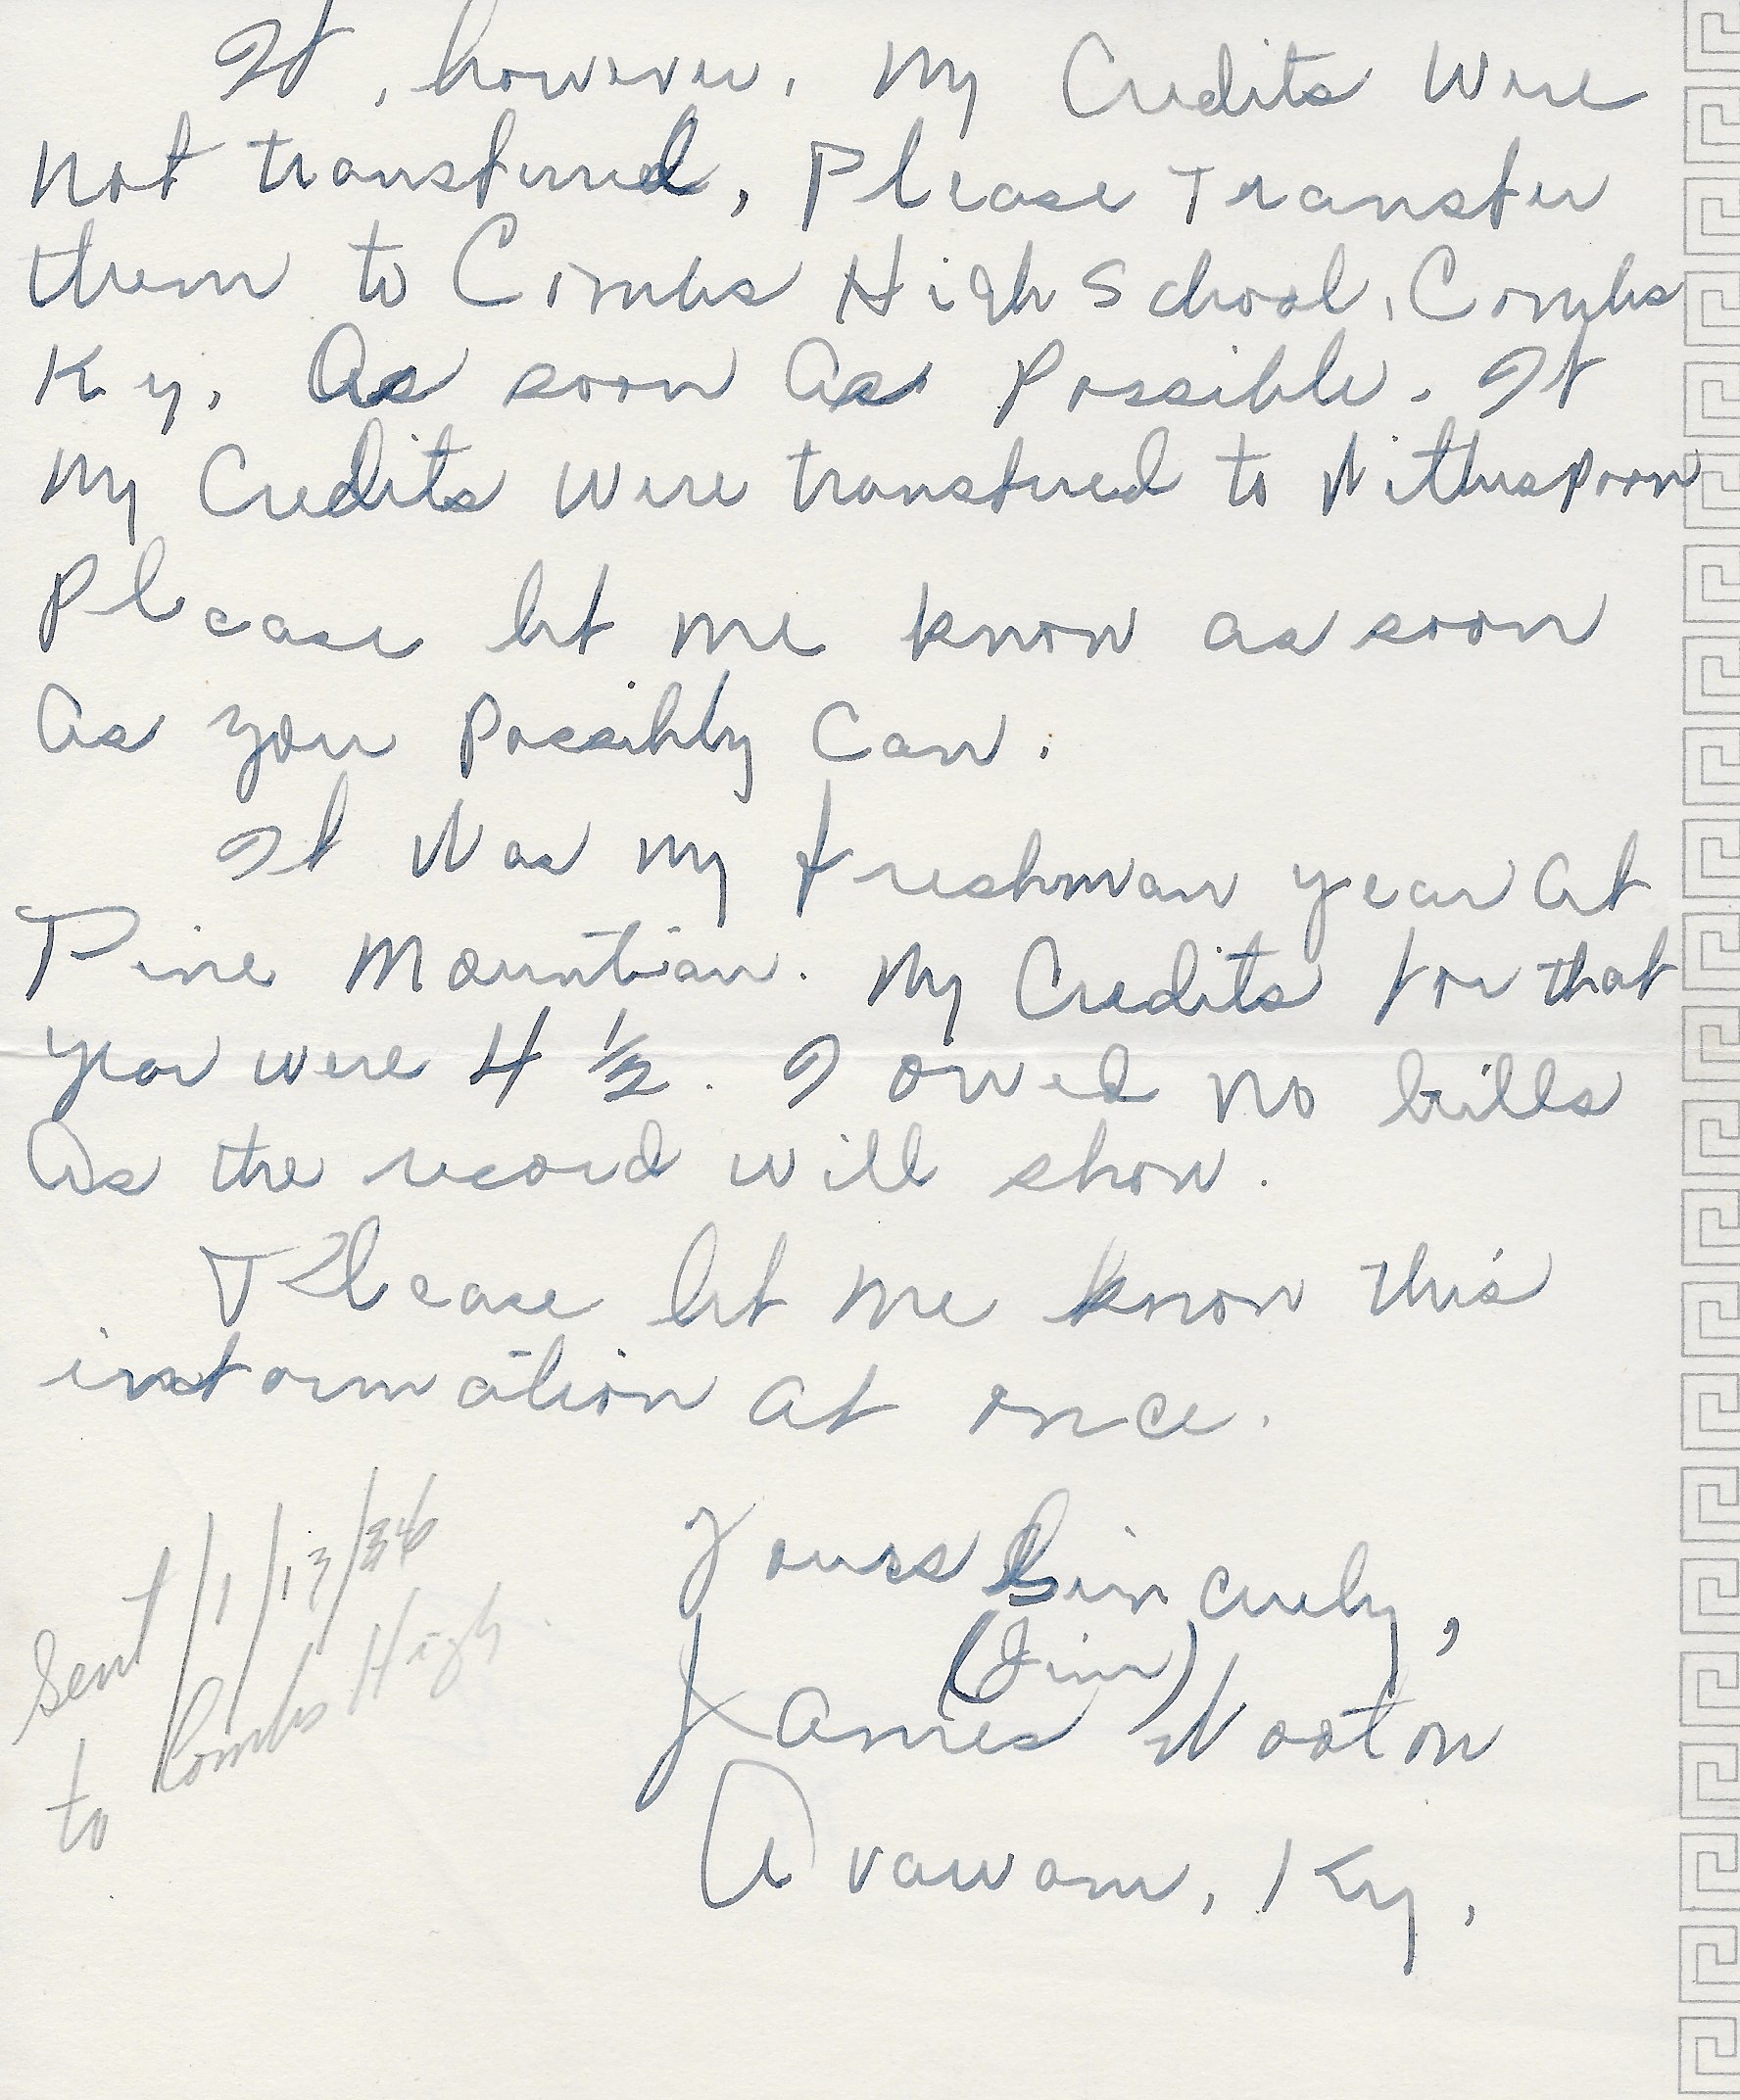 If, however, my Credits were
not transfured, Please Transfer
them to Combs High School, Combs
Ky, As soon As Possible. If
my Credits were transfured to Witherspoon
Please let me know as soon
As you Possibly Can.
It Was my freshman year At
Pine Mountian. My Credits for that
year were 4 1/2. I owed no bills
As the record will show.
Please let me know this
information at once.
Yours Sincerely,
(Jim)
James Wooton
Avawam, Ky,
Sent 1/13/36
to Combs High.